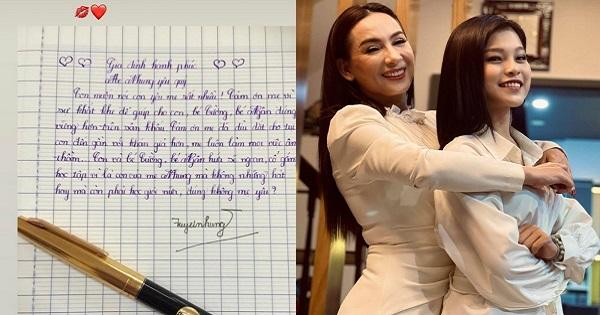 Gia đình hạnh phúc
Mẹ Nhung yêu quý
Con muốn nói con yêu mẹ rất nhiều! Cảm ơn mẹ vì
sự khắt khe để giúp cho con, bé Tường, bé Ngân đứng
vững hơn trên sân khấu. Cảm ơn mẹ đã dìu dắt cho tụi
con đến gần với khán giả hơn, mẹ luôn làm mọi việc âm
thầm. Con và bé Tường, bé Ngân hứa sẽ ngoan, cố gắng
học tập vì là con của mẹ Nhung mà không những hát
hay mà còn phải học giỏi nữa, đúng không mẹ yêu?
Tuyetnhung